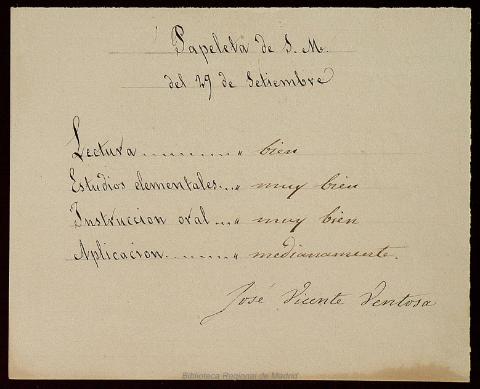 Papeleta de S. M.
del 29 de Setiembre
Lectura ............ „ bien
Estudios elementales... „ muy bien
Instruccion oral... „ muy bien
Aplicacion .......... „ medianamente.
José Vicente Ventosa
Biblioteca Regional de Madrid